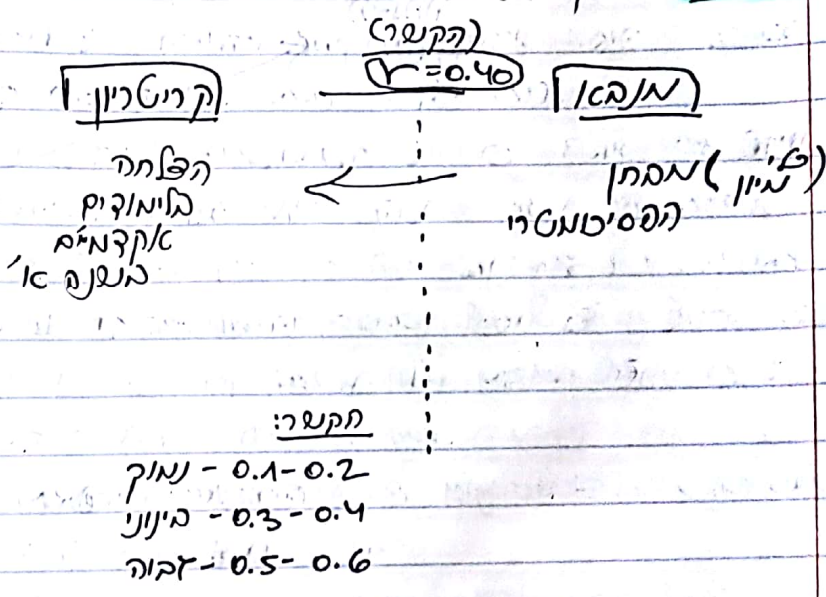 (הקשר)
r=0.40
מנבא
קריטריון
(כלי מיון) מבחן
הפסיכומטרי
הצלחה
בלימודים
אקדמיים
בשנה א'
הקשר:
נמוק - 0.1-0.2
בינוני - 0.3-0.4
גבוה - 0.5-0.6